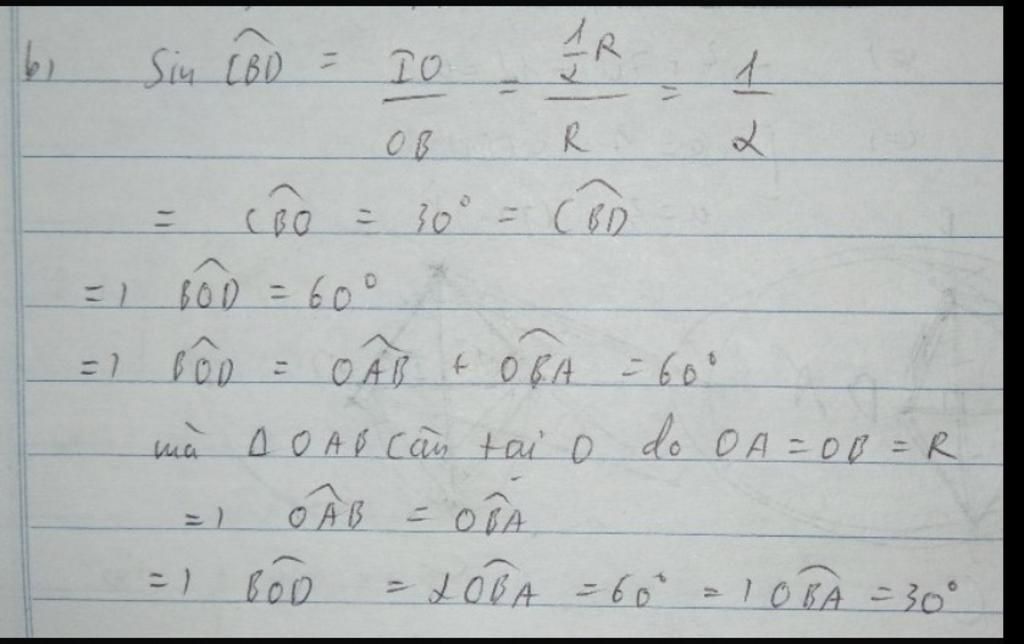 b) Sin \widehat{CBD} = \frac{IO}{OB} = \frac{\frac{1}{2}R}{R} = \frac{1}{2}
= \widehat{CBO} = 30° = \widehat{CBD}
=) \widehat{BOD} = 60°
=) \widehat{BOD} = \widehat{OAB} + \widehat{OBA} = 60°
mà Δ OAB cân tại O do OA = OB = R
=) \widehat{OAB} = \widehat{OBA}
=) \widehat{BOD} = 2\widehat{OBA} = 60° =) \widehat{OBA} = 30°